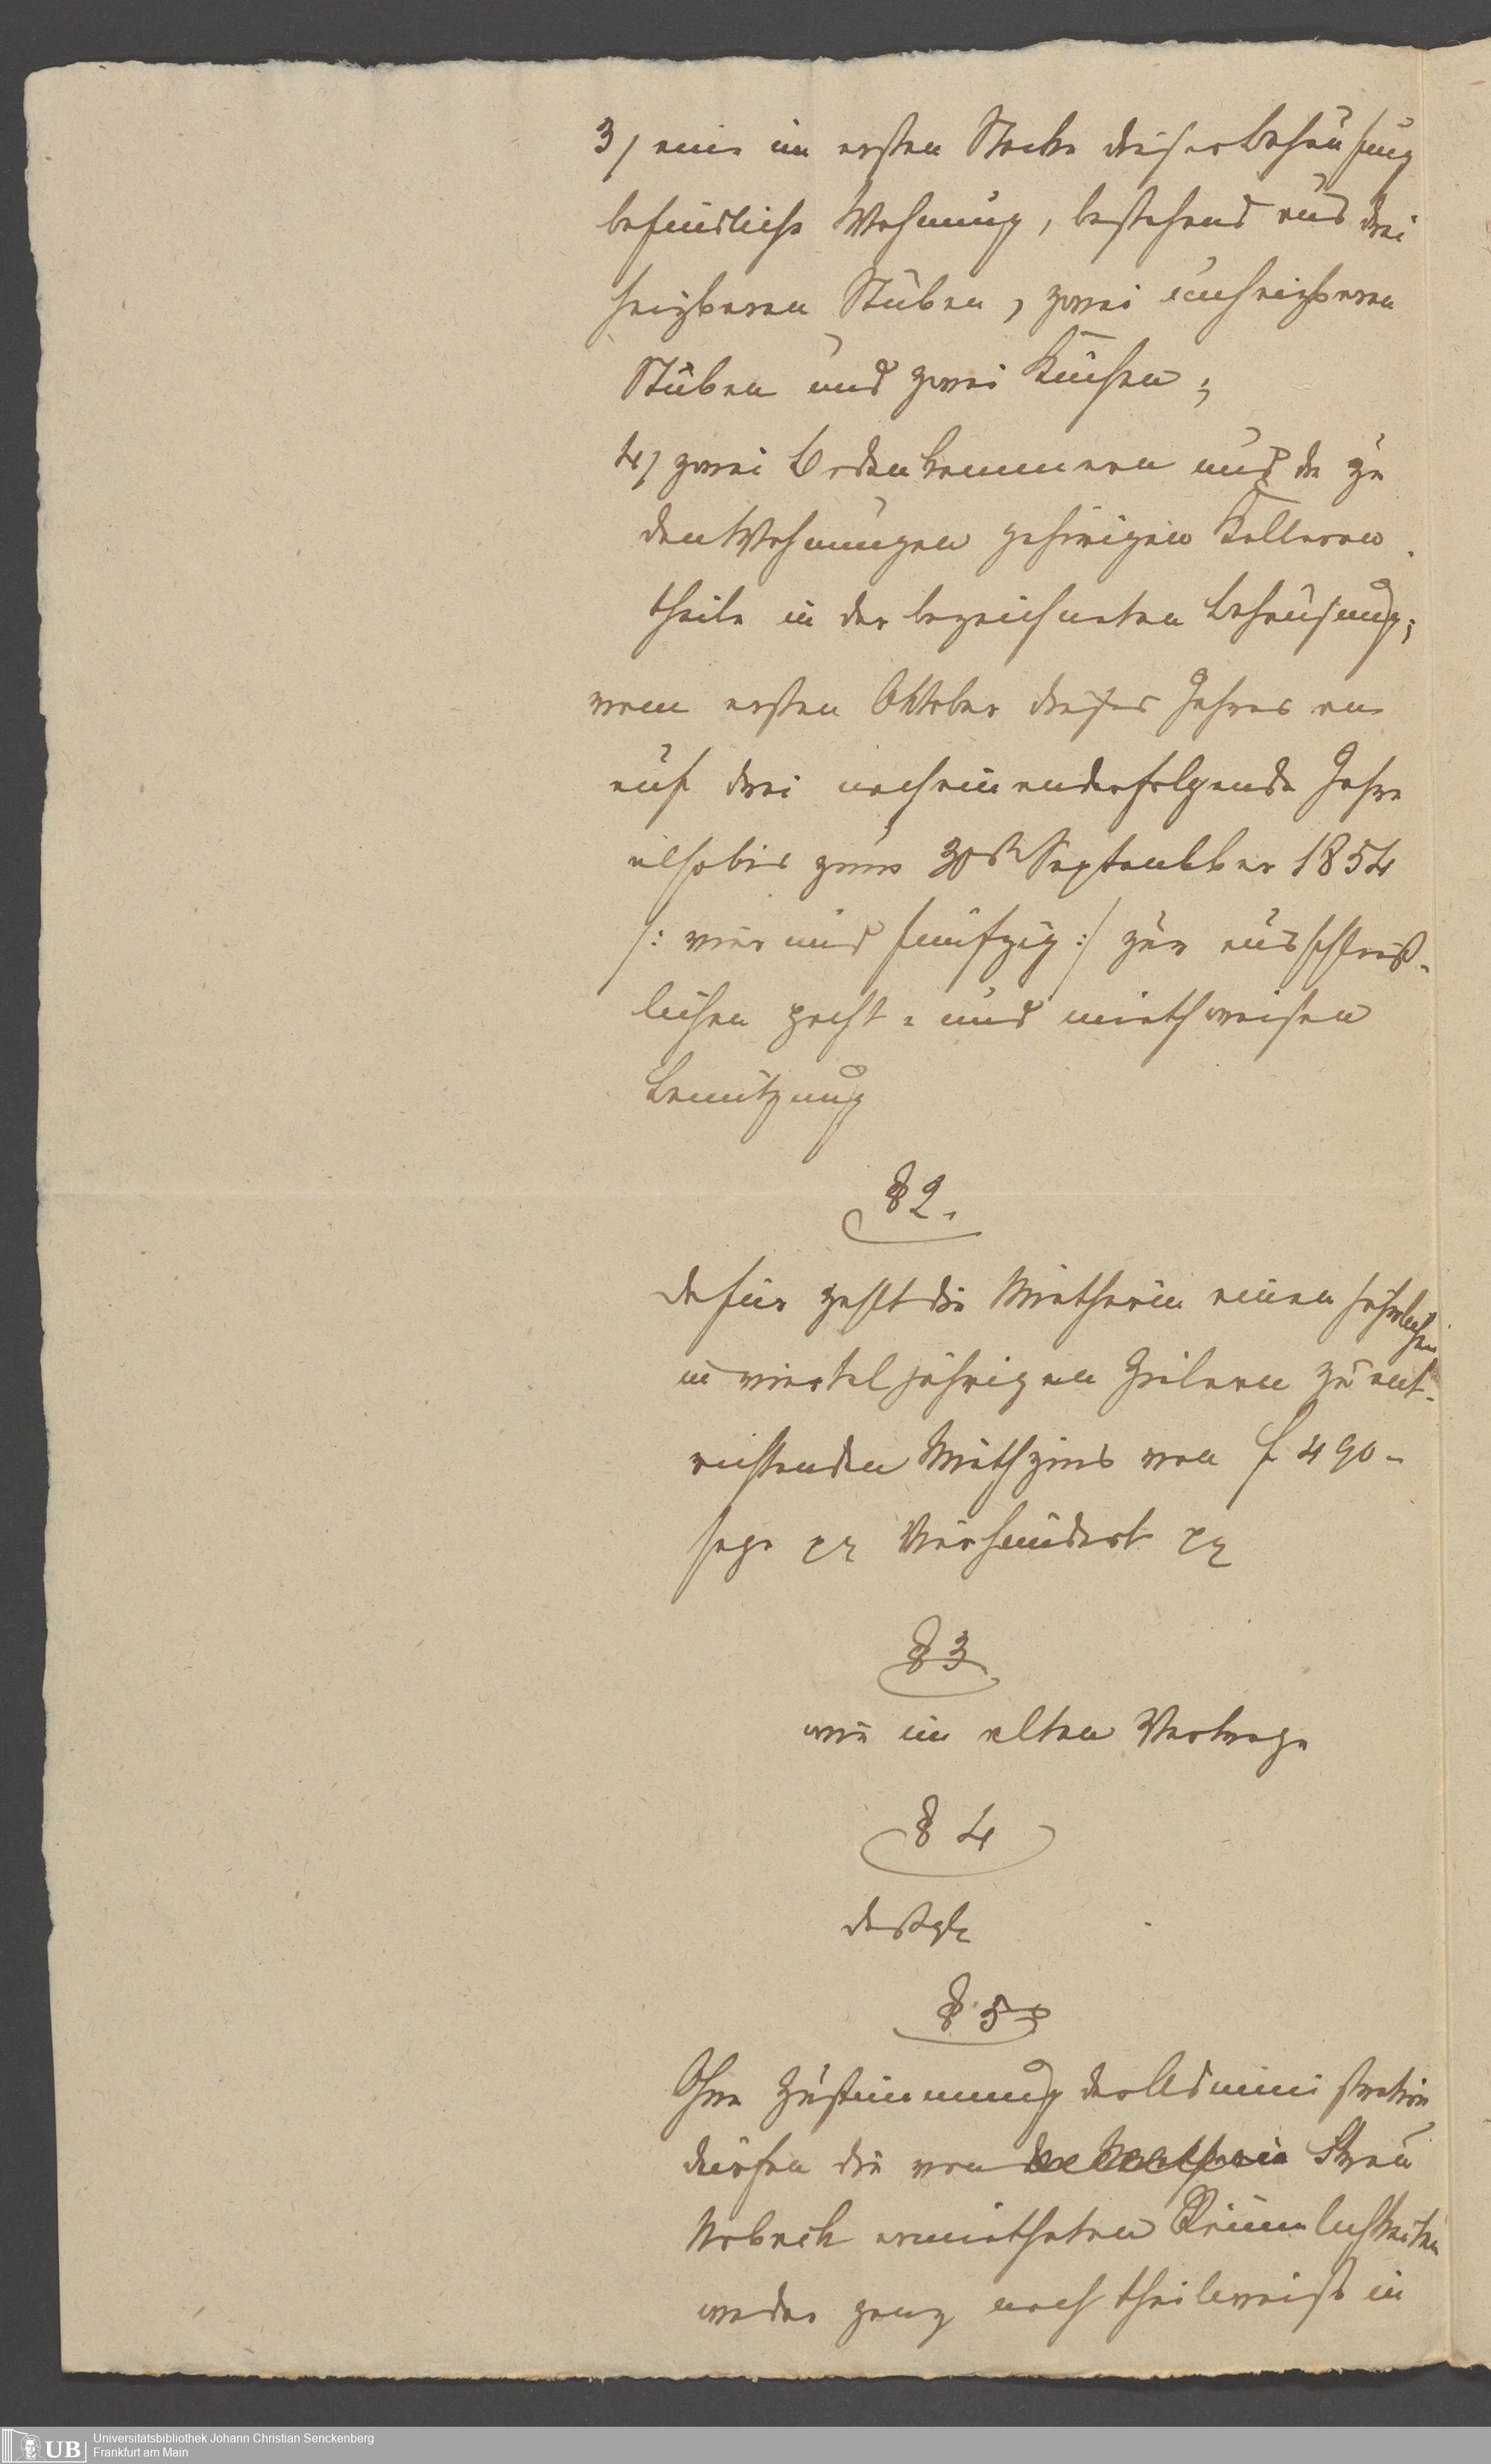 3) eine im ersten Stocke dieser Behausung
befindliche Wohnung, bestehend aus drei
heizbaren Stuben, zwei unheizbaren
Stuben und zwei Küchen;
4) zwei Bodenkammern und die zu
den Wohnungen gehörigen Kelleren
theile in der bezeichneten Behausung;
vom ersten Oktober dieses Jahres an
auf drei nacheinanderfolgende Jahre
also bis zum 30st September 1854
/: vier und fünfzig :/ zur ausschließ-
lichen pacht- und miethweisen
Benützung
§ 2.
Dafür zahlt die Mietherin einen jährlichen
in vierteljährigen Zielern zu ent-
richtenden Miethzins von f 490 -
sage Vierhundert
§ 3
wie im alten Vertrage
§ 4
deßgl
§ 5
Ohne Zustimmung der Administration
dürfen die von Frau
ermietheten Räumlichkeiten
weder ganz noch theilweise in
Universitätsbibliothek Johann Christian Senckenberg
Frankfurt am Main
UB